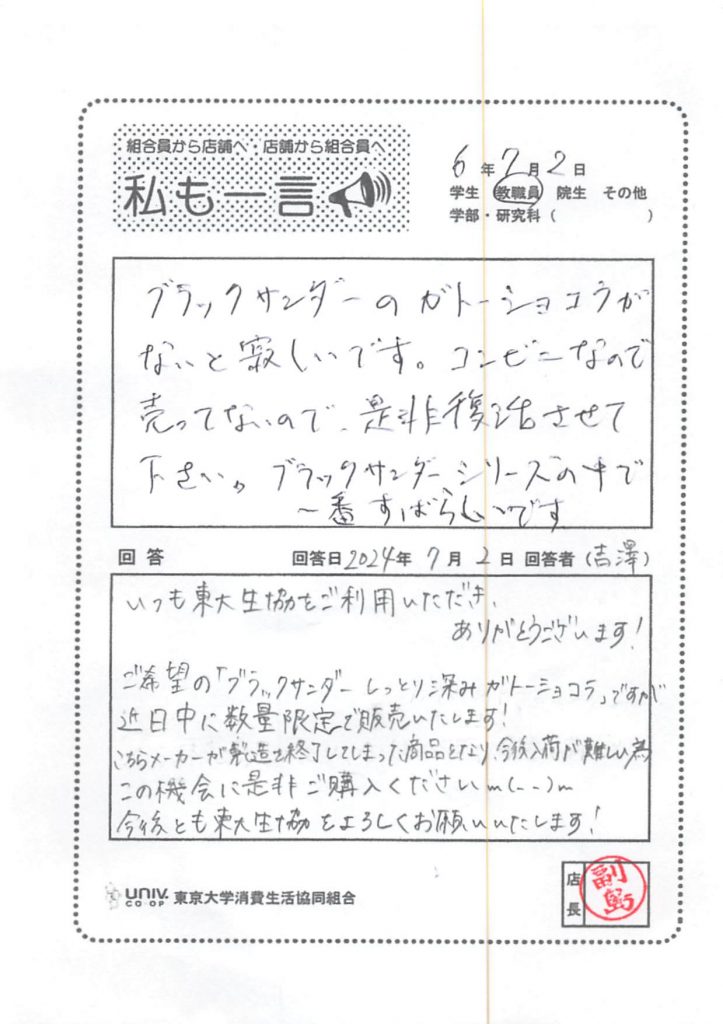 組合員から店舗へ・店舗から組合員へ
私も一言
6年7月2日
学生 教職員 院生 その他
学部・研究科( )
ブラックサンダーのガトーショコラが
ないと寂しいです。コンビニなので
売ってないので、是非復活させて
下さい。ブラックサンダーシリーズの中で
一番すばらしいです
回答 回答日2024年7月2日 回答者(吉澤)
いつも東大生協をご利用いただき、
ありがとうございます!
ご希望の「ブラックサンダーしっとり深みガトーショコラ」ですが
近日中に数量限定で販売いたします!
こちらメーカーが製造を終了してしまった商品となり、今後入荷が難しい為
この機会に是非ご購入くださいm(--)m
今後とも東大生協をよろしくお願いいたします!
UNIV. CO-OP 東京大学消費生活協同組合
店長 副島